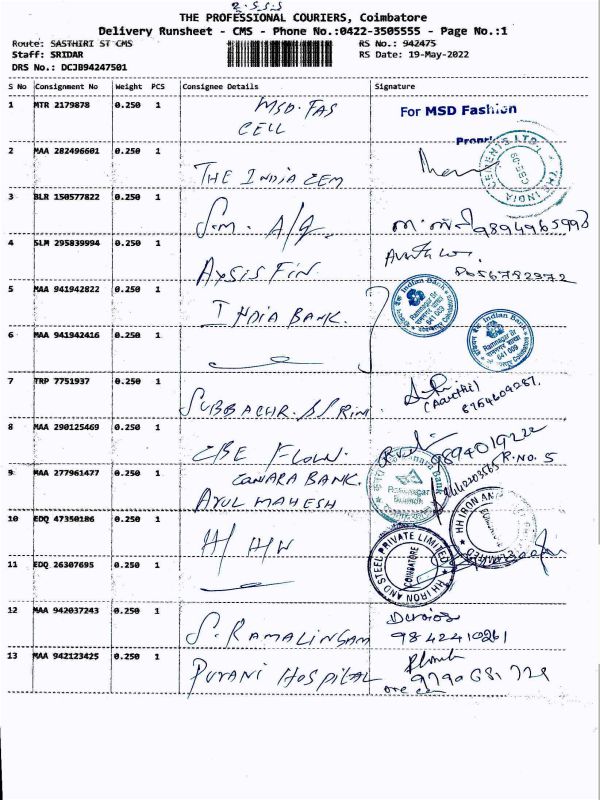 THE PROFESSIONAL COURIERS, Coimbatore
Delivery Runsheet - CMS - Phone No.:0422-3505555 - Page No.:1
Route: SASTHIRI ST CMS RS No.: 942475
Staff: SRIDAR RS Date: 19-May-2022
DRS No.: DCJB94247501
S No Consignment No Weight PCS Consignee Details Signature
1 MTR 2179878 0.250 1 MSD. FAS For MSD Fashion
CELL
2 MAA 282496601 0.250 1 THE INDIA CEM THE INDIA CEMENTS LTD.
3 BLR 150577822 0.250 1 S.M. A/G. 9894965993
4 SLM 295839994 0.250 1 AXSIS FIN
5 MAA 941942822 0.250 1 INDIA BANK. Indian Bank
6 MAA 941942416 0.250 1 Indian Bank
641 009
7 TRP 7751937 0.250 1 8764609287.
8 MAA 290125469 0.250 1 CBE FLOW. 9894019222
R.NO. 5
9 MAA 277961477 0.250 1 CANARA BANK. Canara Bank
AYUL MAHESH
10 EDQ 47350186 0.250 1 H/ H/W HH IRON AND STEEL PRIVATE LIMITED
COIMBATORE
11 EDQ 26307695 0.250 1
12 MAA 942037243 0.250 1 S. RAMALINGAM 9842410261
13 MAA 942123425 0.250 1 PURANI HOSPITAL